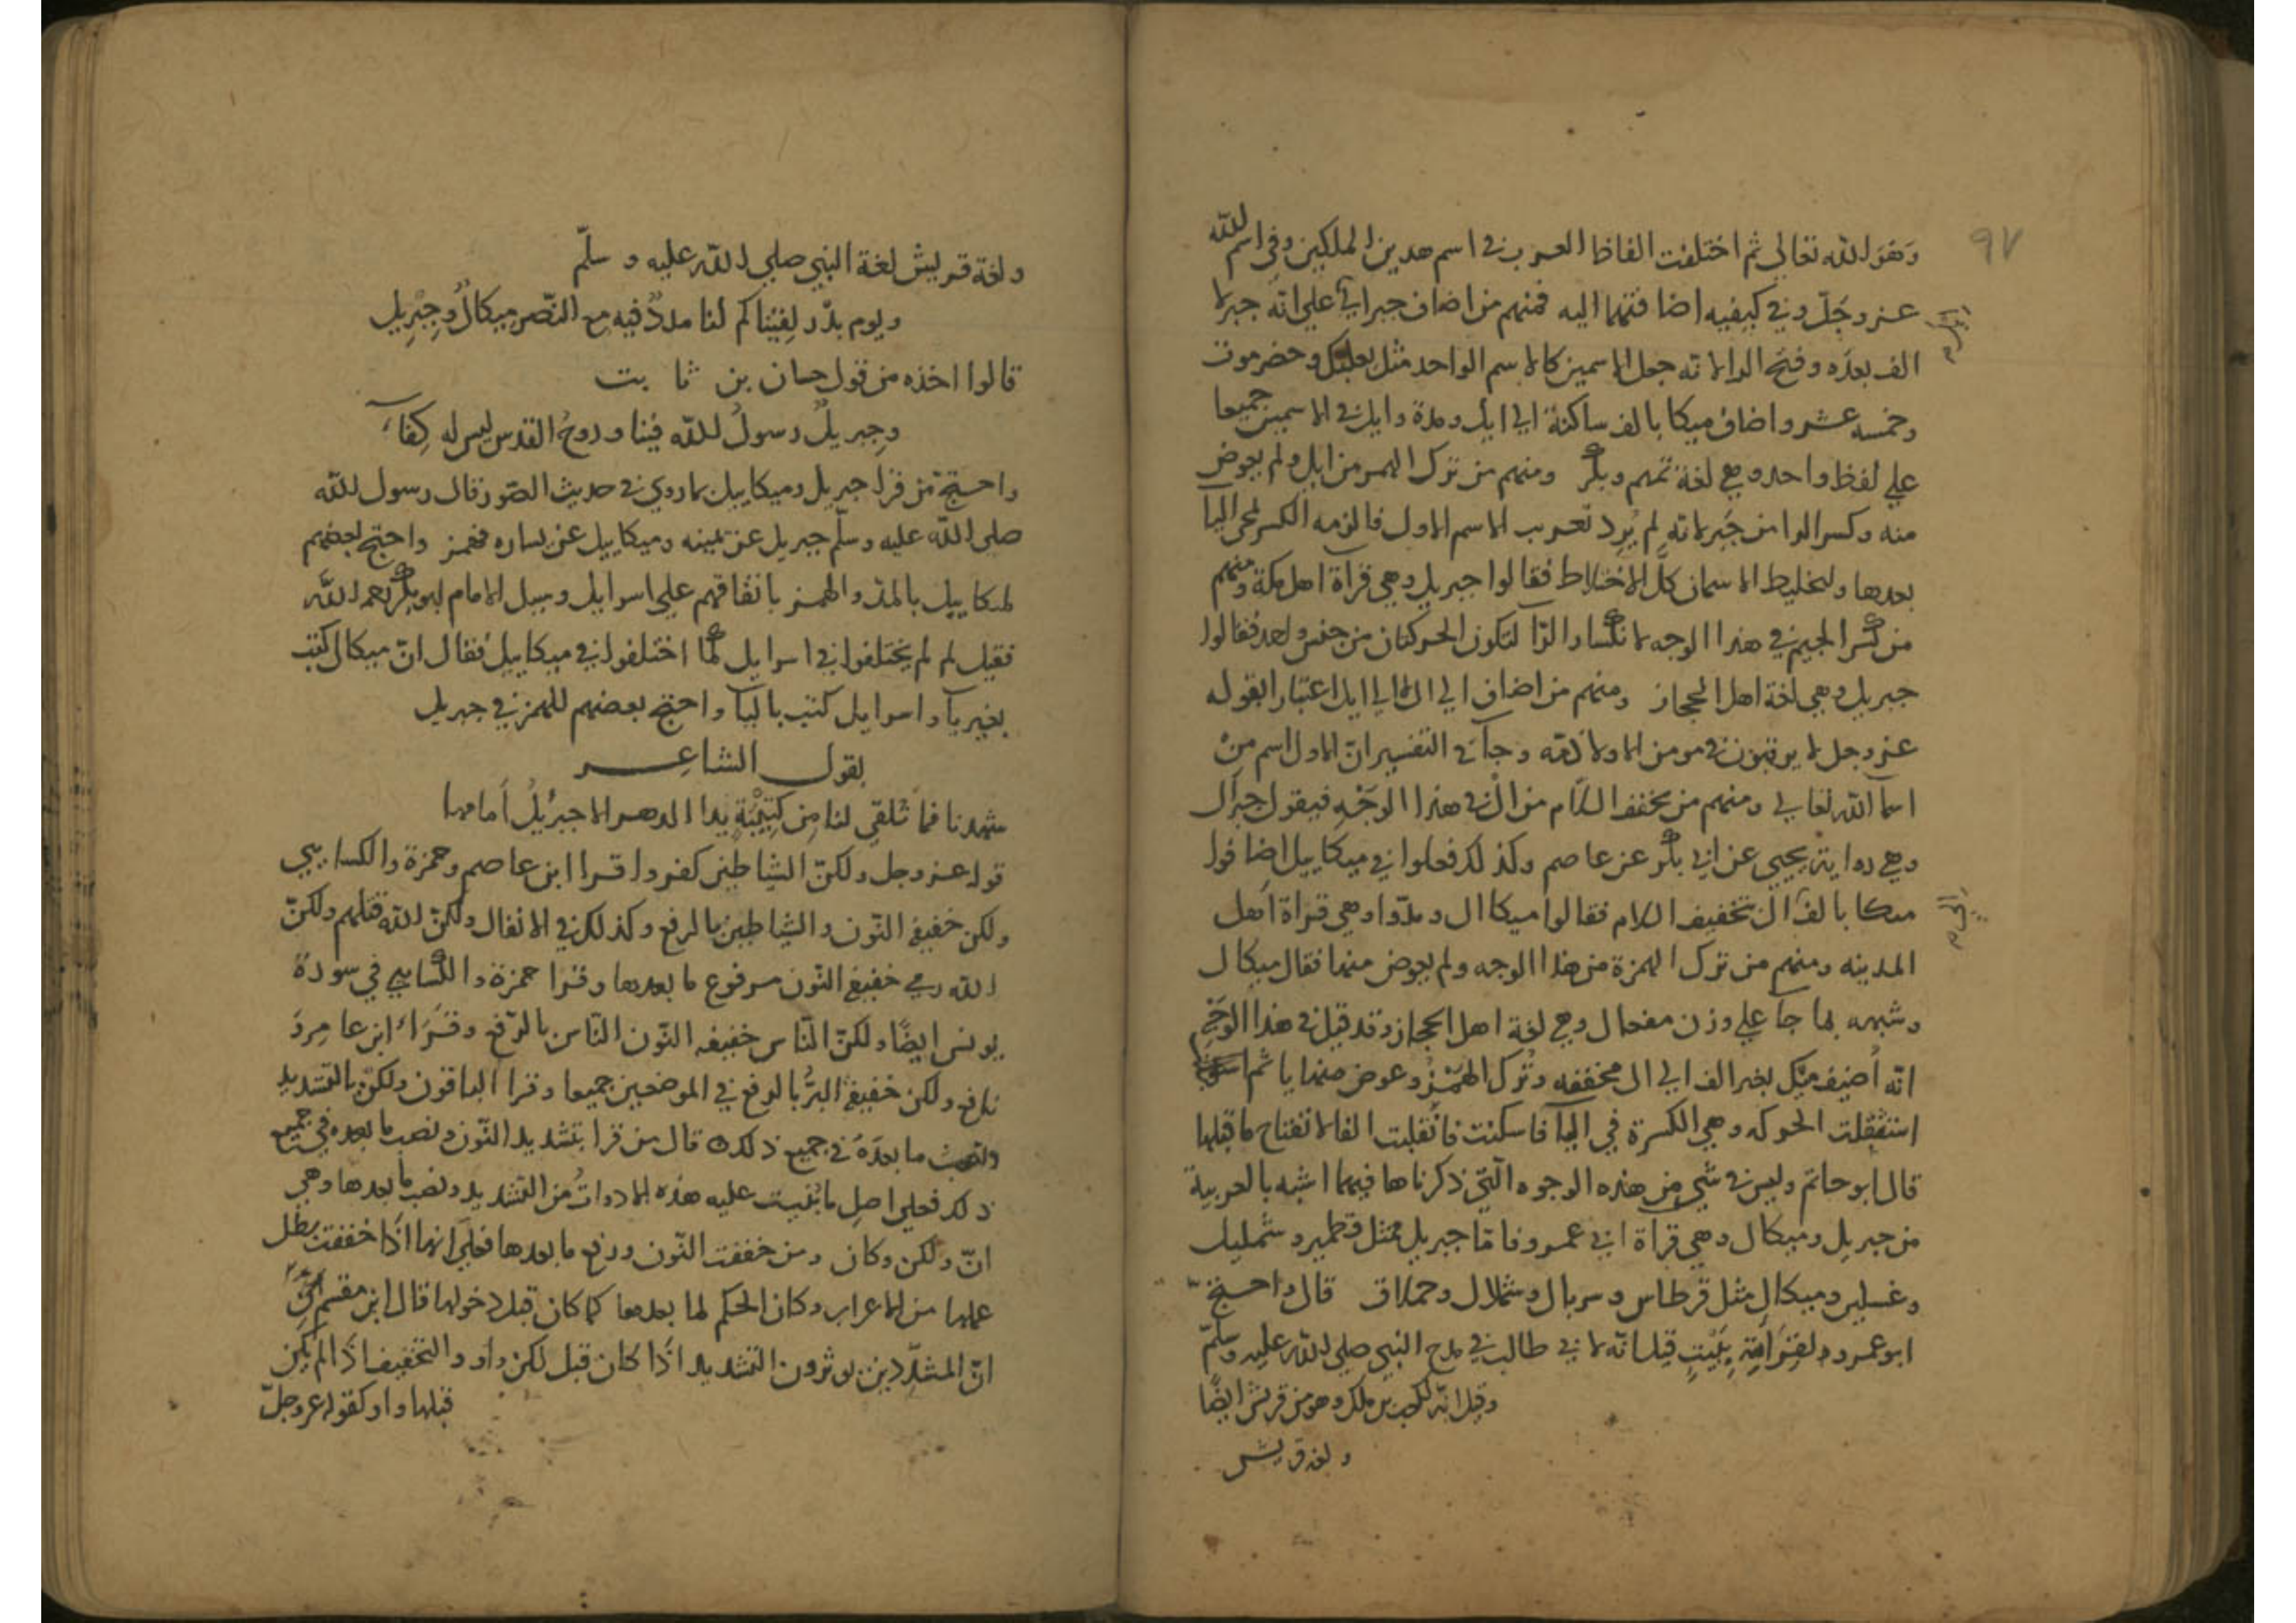 ٩٧
وَهُوَ الله تعالى ثم اختلفت الفاظ العرب في اسم هدين الملكين وفي اسم الله
عز وجَلّ وفي كيفيه اضافتهما اليه فمنهم من اضاف جبرا الى على انّه جبرلا
الف بعدَه وفتح الرا لانه جعل الاسمين كالاسم الواحد مثل بعلبك وحضرموت
وخمسه عشر واضاف ميكا بالف ساكنة الي ايل ومدة وايل في الاسمين جميعا
علي لفظ واحد وهي لغة تميم وبكر ومنهم من ترك الهمز من ايل ولم يعوض
منه وكسر الرا من جَبر لانه لم يُرد تعريب الاسم الاول فالزمه الكسر لمجي اليآ
بعدها ولتخليط الاسمان كلَّ الاختلاط فقالوا جبريل وهي قرأة اهل مكة ومنهم
من كسر الجيم في هذا الوجه لانكسار الرّا لتكون الحركتان من جنس واحد فقالوا
جبريل وهي لغة اهل الحجاز ومنهم من اضاف الي الّ لا الي ايل اعتبارا بقوله
عز وجل لا يرقبون في مومن الا ولا ذمّه وجآ في التفسير انّ الاول اسم مِنْ
اسما الله تعالي ومنهم من يخفف اللام من الّ في هذا الوَجْهِ فيقول جبرَال
وهي رواية يحيي عن ابي بكر عن عاصم وكذلك فعلوا في ميكاييل اضافوا
ميكا بالف الى ال بتخفيف اللام فقالوا ميكاال ومدّوا وهي قراة اَهل
المدينه ومنهم من ترك الهمزة من هذا الوجه ولم يعوض منها فقال ميكال
وشبهه بما جآ علي وزن مفعال وهي لغة اهل الحجاز وقد قيل في هذا الوَجْهِ
انّه اُضيف مِيَكَ بغير الف الي ال مخففه وتُرك الهَمْزُ وعوض منها يا ثم
استثقلت الحركه وهي الكسرة في اليآ فاسكنت فانقلبت الفا لانفتاح ما قبلها
قال ابو حاتم وليس في شي من هذه الوجوه الّتي ذكرناها فيهما اشبه بالعربية
من جبريل وميكال وهي قراة ابي عمرو فامّا جبريل فمثل قطمير وشمليل
وغسلين وميكال مثل قرطاس وسربال وشملال وحملاق قال واحتج
ابو عمرو لقِرَاَءَتِهِ بِبَيْتٍ قيل انّه لابي طالب في مدح النبي صلي الله عليه وسلّم
وقيل انّه لكعب بن ملك وهو من قريش ايضًا
ولغة قريش
ولغة قريش لغة النبي صلي الله عليه وسلّم
ويوم بدْرٍ لقِيْناكم لنا مددٌ فيه مع النّصر ميكالٌ وجِبْرِيل
قالوا اخذه من قول حسان بن ثابت
وجِبريلٌ رسولُ الله فينا وروحُ القدس ليس له كِفآءُ
واحتج من قرا جبريل وميكاييل بما روي في حديث الصّور قال رسول الله
صلى الله عليه وسلّم جبريل عن يمينه وميكاييل عن يساره فهمز واحتج بعضهم
لميكاييل بالمدّ والهمز باتفاقهم علي اسرايل وسيل الامام ابو بكر رحمه الله
فقيل لم لم يختلفوا في اسرايل كما اختلفوا في ميكاييل فقال انّ ميكال كتب
بغير يآ واسرايل كتب باليآ واحتج بعضهم للهمز في جبريل
بقول الشاعر
شهدنا فما تَلقي لنا مِن كتِيْبَةٍ يدا الدهر الا جبرئيلُ اَمامها
قوله عز وجل ولكنّ الشياطين كفروا قرا ابن عامر وحمزة والكسايي
ولكن خفيفة النّون والشياطين بالرفع وكذلك في الانفال ولكنّ الله قتلهم ولكنّ
الله رمي خفيفة النّون مرفوع ما بعدها وقرا حمزة والكسايي في سورة
يونس ايضًا ولكنّ النّاس خفيفه النّون النّاس بالرّفع وقَرَاَ ابن عامر وَ
نافع ولكن خفيفة البرُّ بالرفع في الموضعين جميعا وقرا الباقون ولكنّ بالتشديد
ونصب ما بعدَهُ في جميع ذلك قال من قرا بتشديد النّون ونصب ما بعده في جميع
ذلك فعلي اصل ما بُنيت عليه هذه الادواتُ من التشديد ونصب ما بعدها وهي
انّ ولكن وكان ومن خففت النّون ورفع ما بعدها فعلَي انها اذَا خففت بطل
عملها من الاعراب وكان الحكم لما بعدها كما كان قبل دخولها قال ابن مقسم
انّ المشدِّدين يوثرون التشديد اذَا كان قبل لكن واو والتخفيف اذَا لم يكن
قبلها واو كقوله عز وجلّ